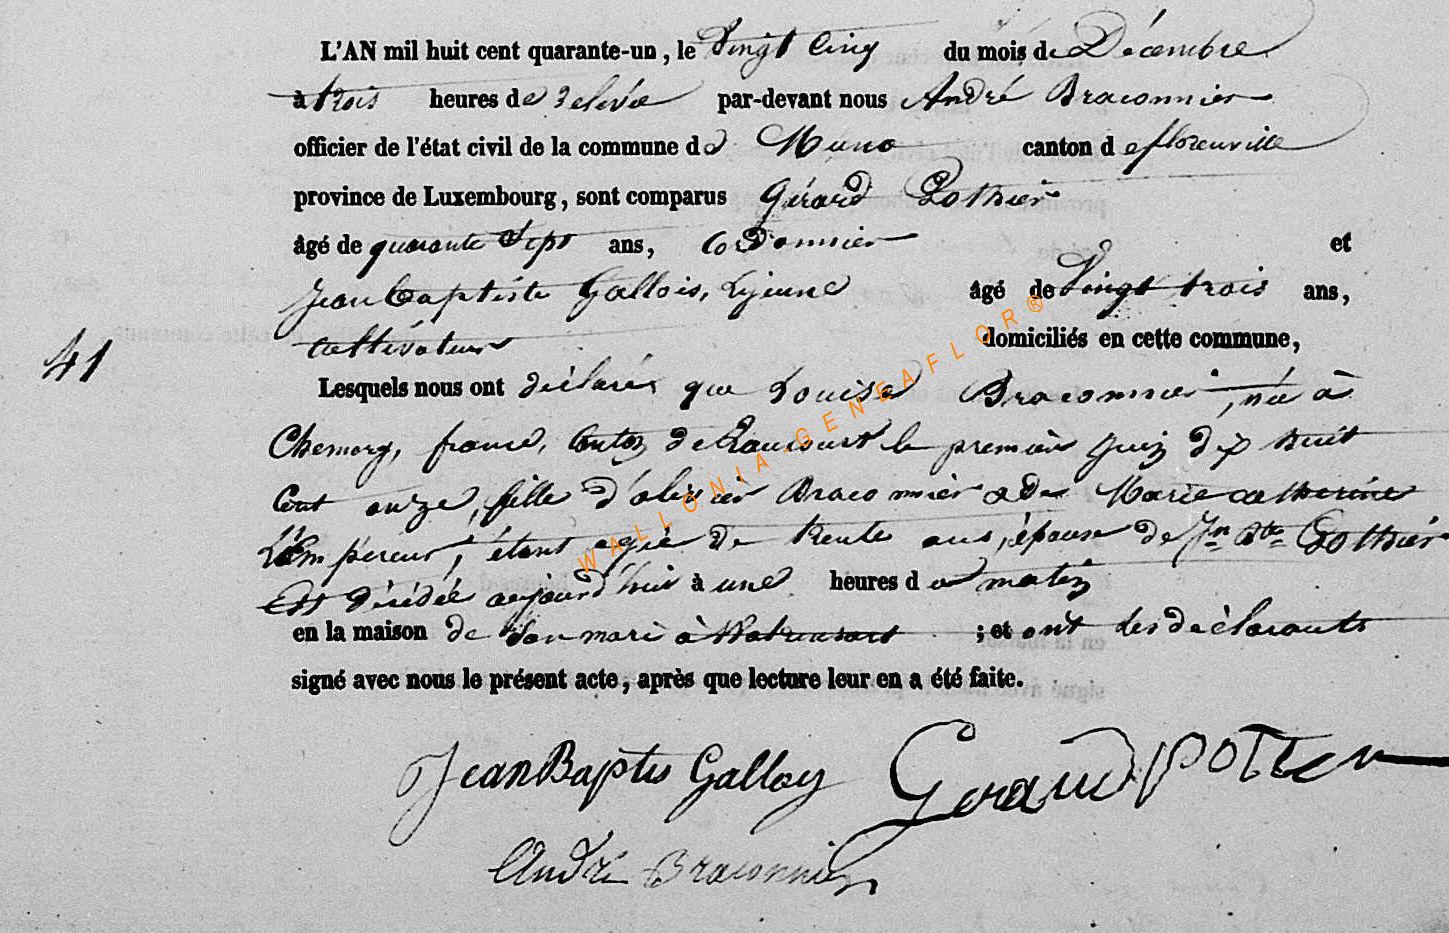 L'AN mil huit cent quarante-un, le Vingt Cinq du mois de Décembre
à trois heures de relevée par-devant nous André Braconnier
officier de l'état civil de la commune de Muno canton de florenville
province de Luxembourg, sont comparus Gérard Pothier
âgé de quarante Sept ans, Cordonnier et
Jean Baptiste Gallois, Lejeune âgé de Vingt trois ans,
Cultivateur domiciliés en cette commune,
41
Lesquels nous ont déclarés que Louise Braconnier, née à
Chemery, france, Canton de Raucourt le premier Juin dix huit
Cent onze, fille d'olivier Braconnier & de Marie catherine
L'Empereur, étant agée de trente ans, épouse de Jn Bte Pothier
Est décédée aujourd'hui à une heures du matin
en la maison de Son mari à ; et ont les déclarants
signé avec nous le présent acte, après que lecture leur en a été faite.
Jean Baptis Galloy Gerard potier
André Braconnier
WALLONIA GENEAFLOR®